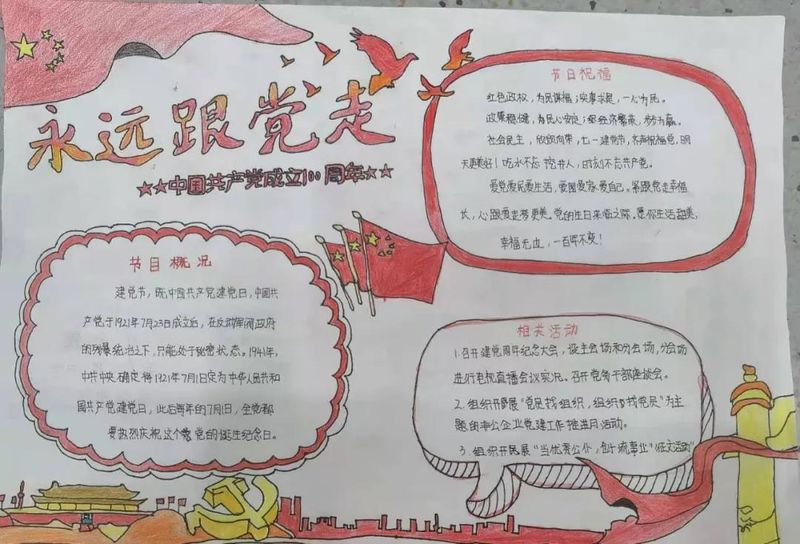 永远跟党走
★★中国共产党成立100周年★★
节日祝福
红色政权，为民谋福；实事求是，一心为民。
政策稳健，为民心安定；经济繁荣，
社会民主，欣欣向荣，七一建党节，齐声祝福党，明
天更美好！吃水不忘挖井人，时刻不忘共产党。
爱党爱民爱生活，爱国爱家爱自己。紧跟党走幸福
长，心跟着走梦更美。党的生日来临之际，愿你生活甜美，
幸福无边，一百年不变！
节目概况
建党节，既中国共产党建党日，中国共
产党于1921年7月23日成立后，在反动军阀政府
的残暴统治之下，只能处于秘密状态。1941年，
中共中央确定将1921年7月1日定为中华人民共和
国共产党建党日，此后每年的7月1日，全党都
要热烈庆祝这个党的诞生纪念日。
相关活动
1.召开建党周年纪念大会，设主会场和分会场，分会场
进行电视直播会议实况。召开党务干部座谈会。
2.组织开展“党员找组织，组织找党员”为主
题的非公企业党建工作推进月活动。
3.组织开展“当优秀公仆，创一流事业”征文活动